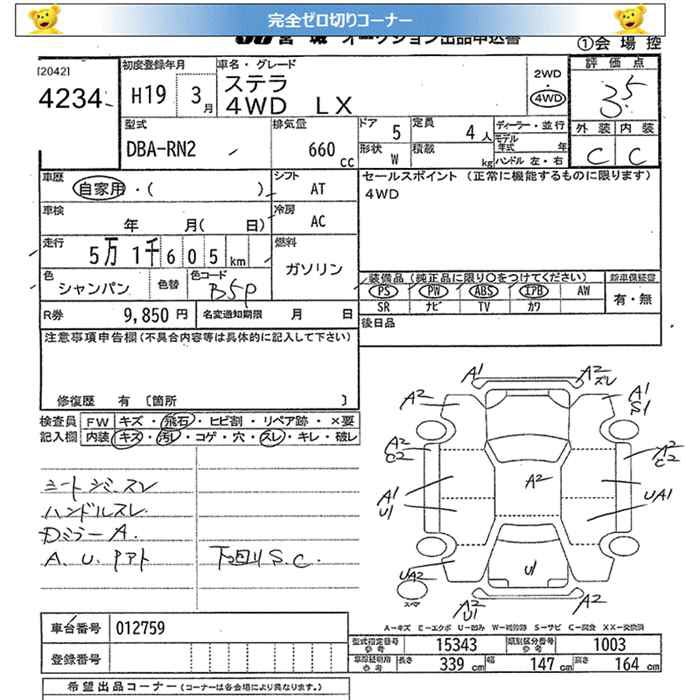 完全ゼロ切りコーナー
JU宮城 オークション出品申込書
①会場控
[2042]
4234
初度登録年月
H19 3月
車名・グレード
ステラ
4WD LX
2WD
4WD
評価点
3.5
外装 内装
C C
型式
DBA-RN2
排気量
660 cc
ドア 5
定員 4人
形状 W
積載 kg
ディーラー・並行
モデル年式 年
ハンドル 左・右
車歴
自家用・( )
シフト
AT
セールスポイント (正常に機能するものに限ります)
4WD
車検
年 月( 日)
冷房
AC
走行
5万1千605km
燃料
ガソリン
色
シャンパン
色替
色コード
B5P
装備品(純正品に限り○をつけてください)
新車保証書
PS PW ABS エアB AW
SR ナビ TV カワ
有・無
R券 9,850円
名変通知期限 月 日
後日品
注意事項申告欄(不具合内容等は具体的に記入して下さい)
修復歴 有 〔箇所 〕
検査員記入欄
FW キズ・飛石・ヒビ割・リペア跡・×要
内装 キズ・汚レ・コゲ・穴・スレ・キレ・破レ
シートシミ、スレ
ハンドルスレ
DミラーA.
A、U、Pアト
下回りS.C.
A1
A2
スレ
A2
A1
S1
A2
C2
A2
C2
A2
A1
U1
UA1
U1
UA2
スペア
A2
U1
A2
A-キズ E-エクボ U-凹み W-補修跡 S-サビ C-腐食 XX-交換済
車台番号 012759
登録番号
型式指定番号 参考 15343
類別区分番号 参考 1003
車庫証明用 参考 長さ 339cm 幅 147cm 高さ 164cm
希望出品コーナー(コーナーは各会場により異なります。)